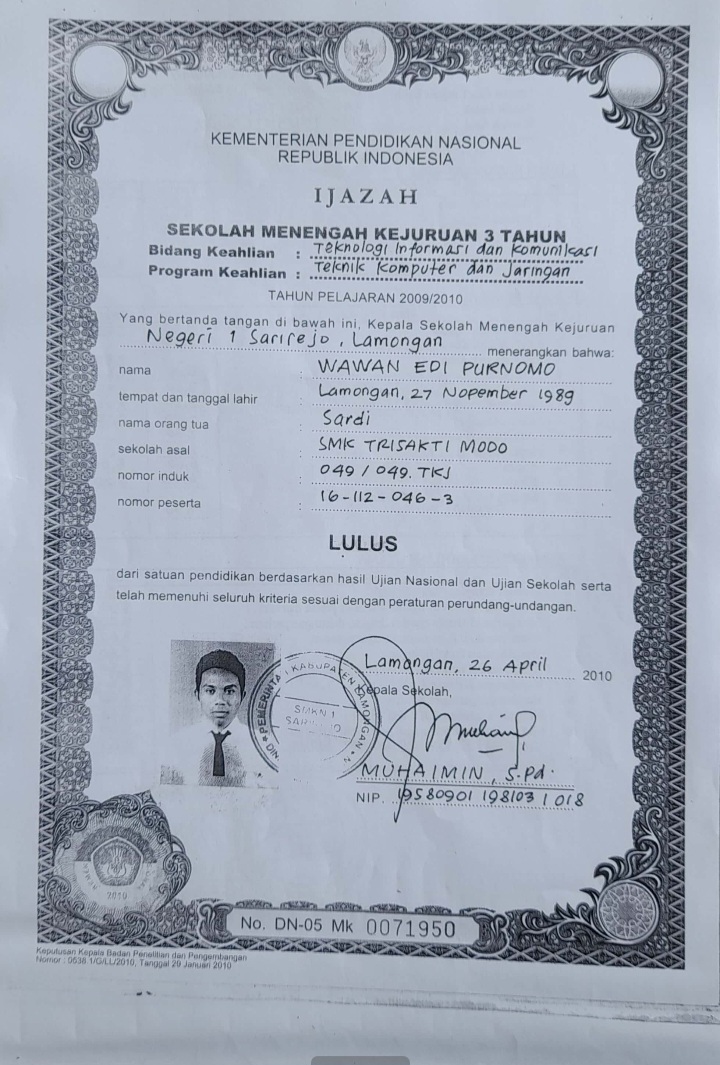 KEMENTERIAN PENDIDIKAN NASIONAL
REPUBLIK INDONESIA
IJAZAH
SEKOLAH MENENGAH KEJURUAN 3 TAHUN
Bidang Keahlian : Teknologi Informasi dan Komunikasi
Program Keahlian : Teknik Komputer dan Jaringan
TAHUN PELAJARAN 2009/2010
Yang bertanda tangan di bawah ini, Kepala Sekolah Menengah Kejuruan
Negeri 1 Sarirejo, Lamongan menerangkan bahwa:
nama : WAWAN EDI PURNOMO
tempat dan tanggal lahir : Lamongan, 27 Nopember 1989
nama orang tua : Sardi
sekolah asal : SMK TRISAKTI MODO
nomor induk : 049 / 049. TKJ
nomor peserta : 16-112-046-3
LULUS
dari satuan pendidikan berdasarkan hasil Ujian Nasional dan Ujian Sekolah serta
telah memenuhi seluruh kriteria sesuai dengan peraturan perundang-undangan.
Lamongan, 26 April 2010
Kepala Sekolah,
PEMERINTA KABUPATEN LAMONGAN
SMKN 1
MUHAIMIN, S.Pd.
NIP. 19580901 198103 1 018
2010
No. DN-05 Mk 0071950
Keputusan Kepala Badan Penelitian dan Pengembangan
Nomor : 0638.1/G/LL/2010, Tanggal 20 Januari 2010